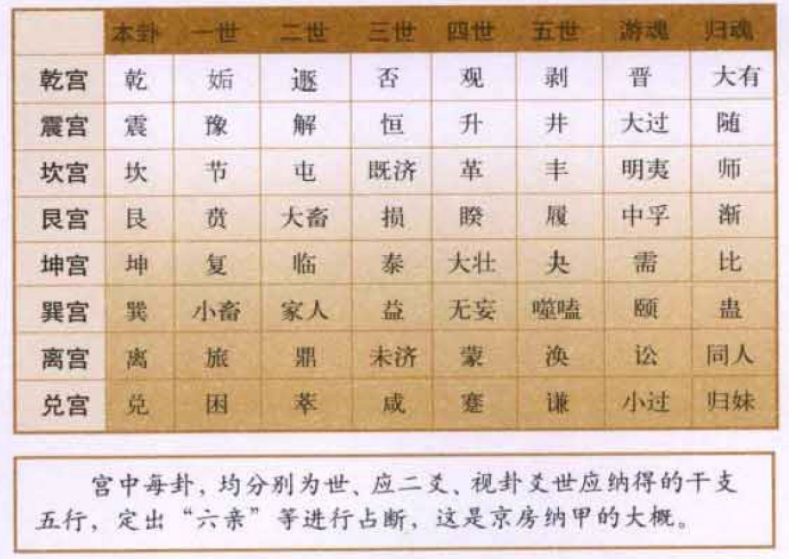 本卦 一世 二世 三世 四世 五世 游魂 归魂
乾宫 乾 姤 遯 否 观 剥 晋 大有
震宫 震 豫 解 恒 升 井 大过 随
坎宫 坎 节 屯 既济 革 丰 明夷 师
艮宫 艮 贲 大畜 损 睽 履 中孚 渐
坤宫 坤 复 临 泰 大壮 夬 需 比
巽宫 巽 小畜 家人 益 无妄 噬嗑 颐 蛊
离宫 离 旅 鼎 未济 蒙 涣 讼 同人
兑宫 兑 困 萃 咸 蹇 谦 小过 归妹
宫中每卦，均分别为世、应二爻、视卦爻世应纳得的干支
五行，定出“六亲”等进行占断，这是京房纳甲的大概。